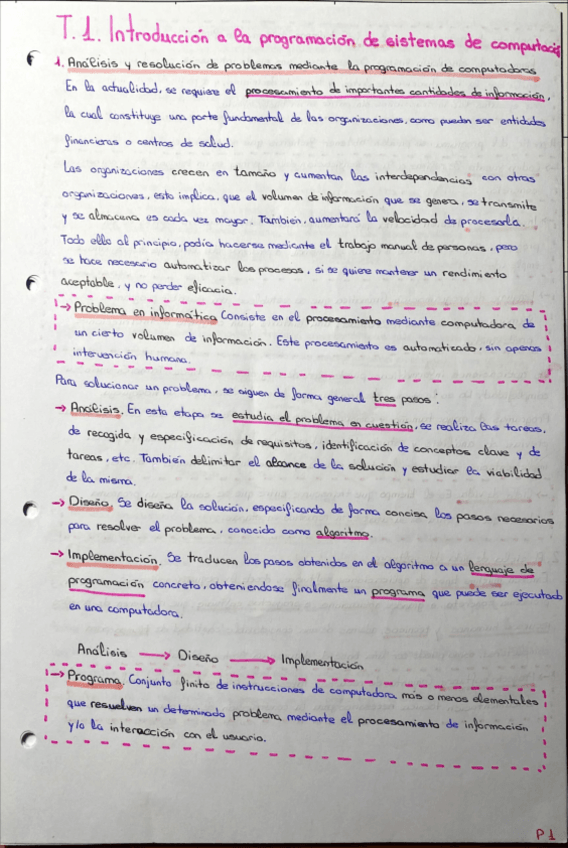 T.1. Introducción a la programación de sistemas de computación
1. Análisis y resolución de problemas mediante la programación de computadoras
En la actualidad, se requiere el procesamiento de importantes cantidades de información,
la cual constituye una parte fundamental de las organizaciones, como puedan ser entidades
financieras o centros de salud.
Las organizaciones crecen en tamaño y aumentan las interdependencias con otras
organizaciones, esto implica, que el volumen de información que se genera, se transmite
y se almacena es cada vez mayor. También, aumentará la velocidad de procesarla.
Todo ello al principio, podía hacerse mediante el trabajo manual de personas, pero
se hace necesario automatizar los procesos, si se quiere mantener un rendimiento
aceptable, y no perder eficacia.
→ Problema en informática. Consiste en el procesamiento mediante computadora de
un cierto volumen de información. Este procesamiento es automaticado, sin apenas
intervención humana.
Para solucionar un problema, se siguen de forma general tres pasos:
→ Análisis. En esta etapa se estudia el problema en cuestión, se realiza las tareas,
de recogida y especificación de requisitos, identificación de conceptos clave y de
tareas, etc. También delimitar el alcance de la solución y estudiar la viabilidad
de la misma.
→ Diseño. Se diseña la solución, especificando de forma concisa, los pasos necesarios
para resolver el problema, conocido como algoritmo.
→ Implementación. Se traducen los pasos obtenidos en el algoritmo a un lenguaje de
programación concreto, obteniendose finalmente un programa que puede ser ejecutado
en una computadora.
Análisis → Diseño → Implementación
→ Programa. Conjunto finito de instrucciones de computadora, más o menos elementales
que resuelven un determinado problema mediante el procesamiento de información
y/o la interacción con el usuario.
P1